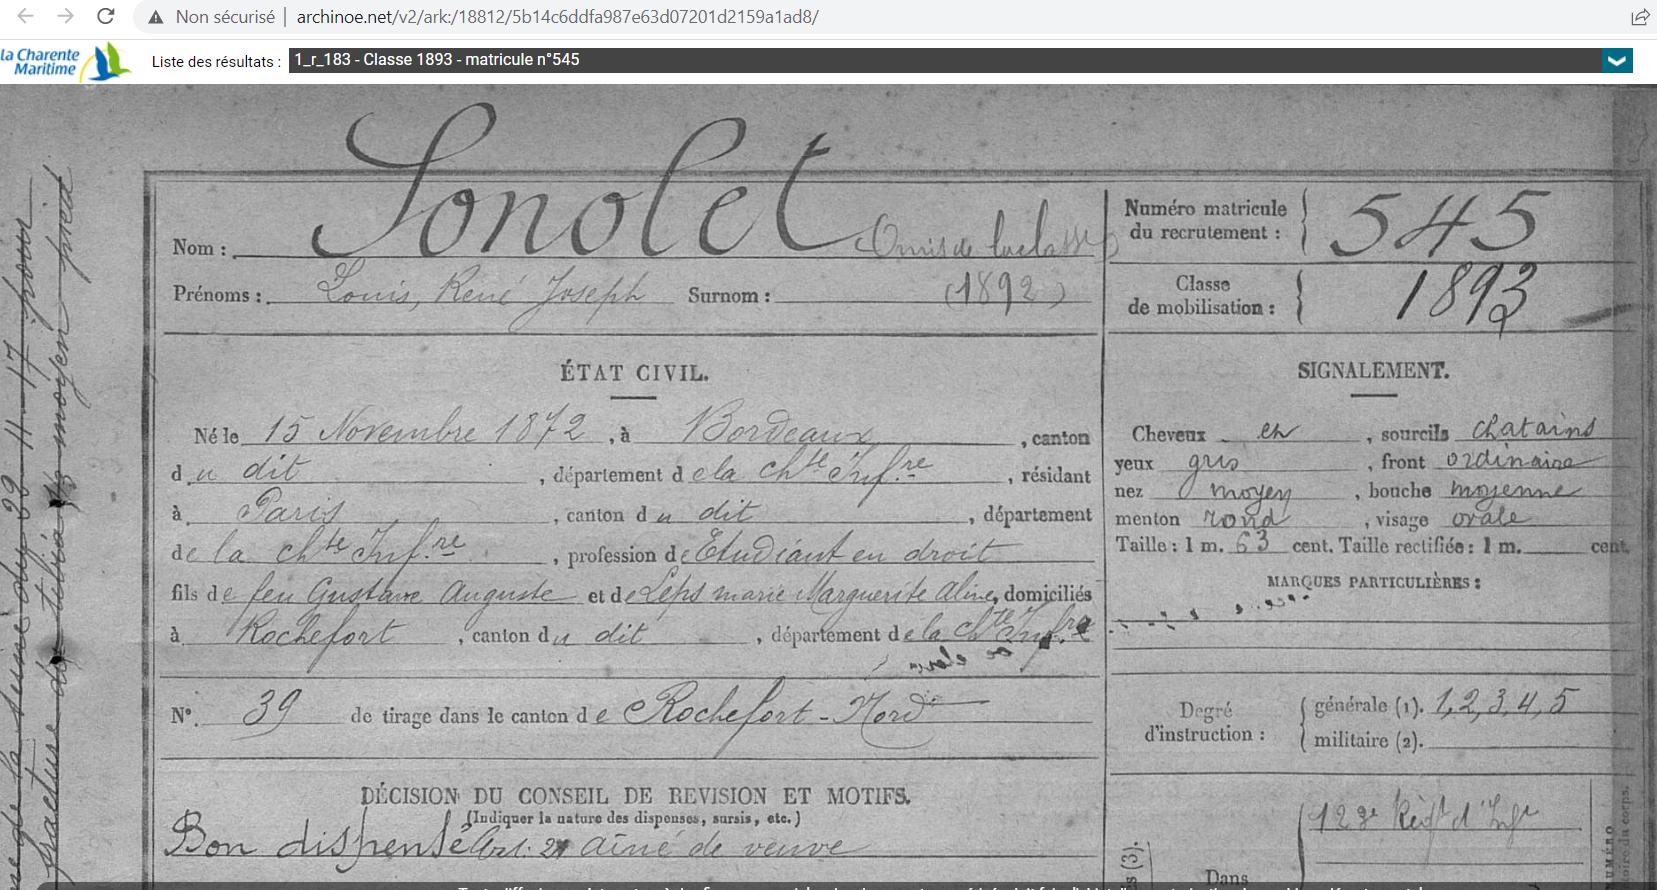 Non sécurisé | archinoe.net/v2/ark:/18812/5b14c6ddfa987e63d07201d2159a1ad8/
la Charente Maritime
Liste des résultats : 1_r_183 - Classe 1893 - matricule n°545
Nom : Sonolet Omis de la classe
Prénoms : Louis, René Joseph Surnom : (1892)
Numéro matricule du recrutement : 545
Classe de mobilisation : 1893
ÉTAT CIVIL.
Né le 15 Novembre 1872, à Bordeaux, canton
du dit, département de la Chte Infre, résidant
à Paris, canton du dit, département
de la Chte Infre, profession de Etudiant en droit
fils de feu Gustave Auguste et de Leps marie Marguerite Aline, domiciliés
à Rochefort, canton du dit, département de la Chte Infre
N°. 39 de tirage dans le canton de Rochefort-Nord
SIGNALEMENT.
Cheveux et, sourcils chatains
yeux gris, front ordinaire
nez moyen, bouche moyenne
menton rond, visage ovale
Taille : 1 m. 63 cent. Taille rectifiée : 1 m. cent.
MARQUES PARTICULIÈRES :
Degré d'instruction : générale (1). 1,2,3,4,5
militaire (2).
DÉCISION DU CONSEIL DE REVISION ET MOTIFS.
(Indiquer la nature des dispenses, sursis, etc.)
Bon dispensé Art. 21 aîné de veuve
123e Régt d'Infie
Dans
(3).
NUMÉRO
fracture du tibia moyen pied
de la Seine du 28-11-17 pour